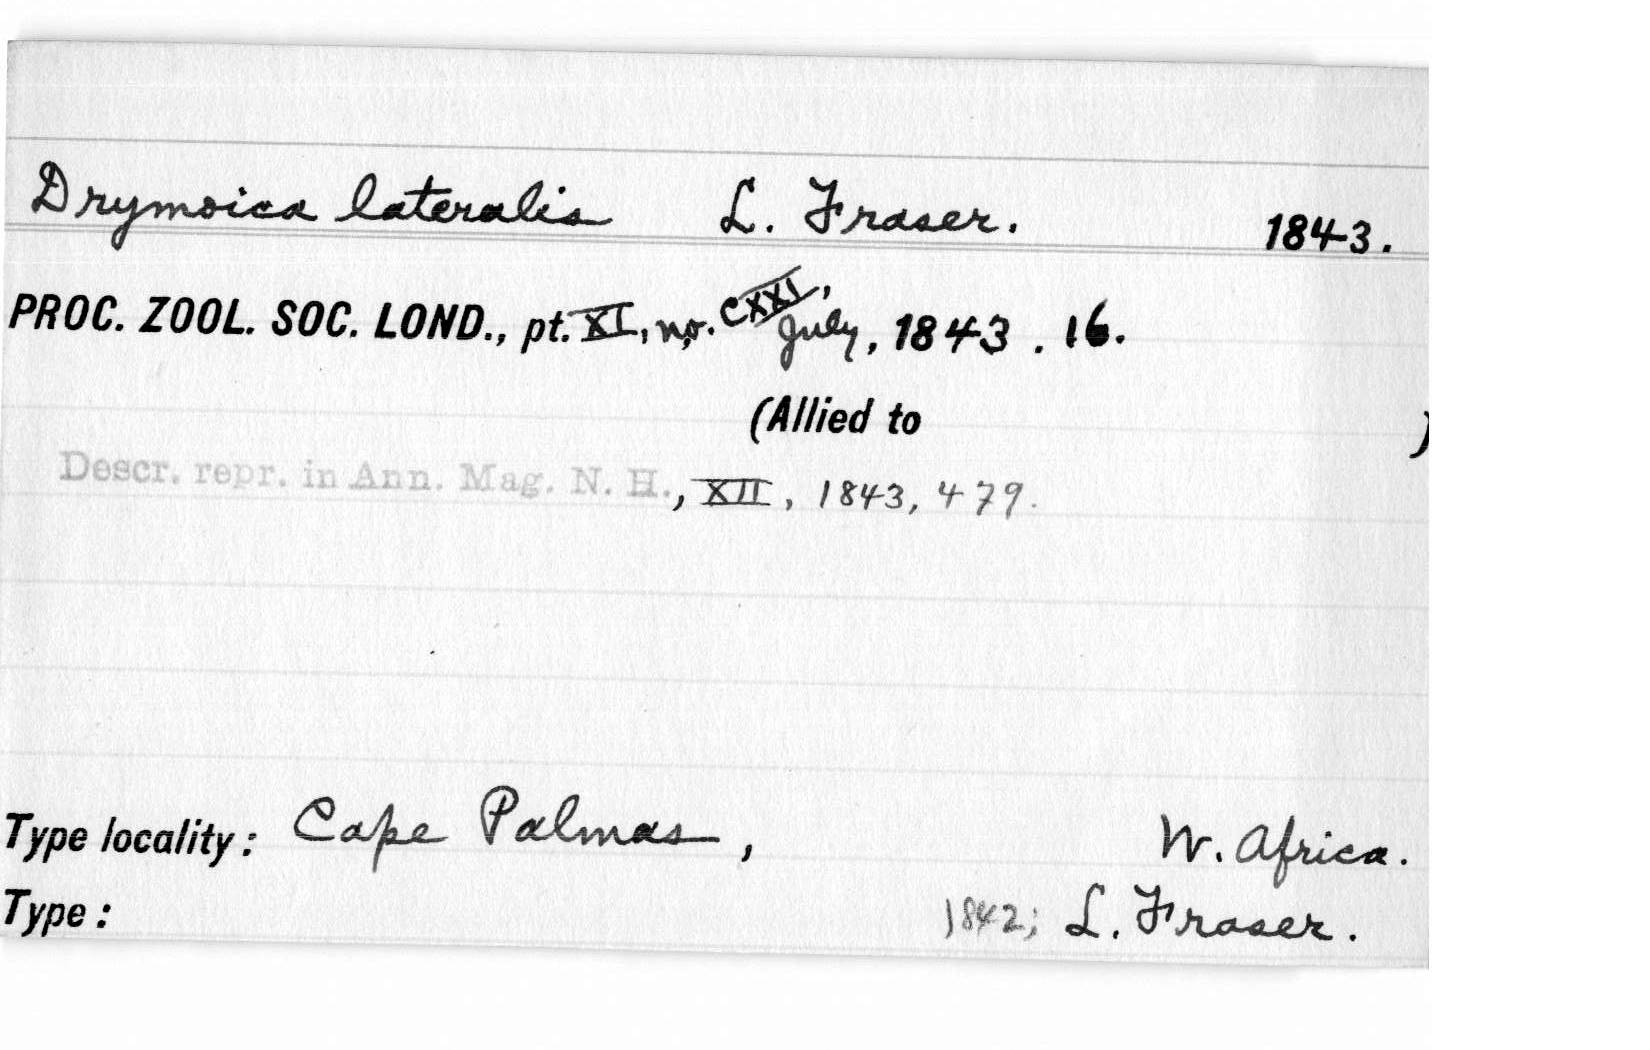 Drymoica lateralis L. Fraser. 1843.
PROC. ZOOL. SOC. LOND., pt. XI, no. CXXI, July, 1843. 16.
(Allied to )
Descr. repr. in Ann. Mag. N. H., XII, 1843, 479.
Type locality: Cape Palmas, W. Africa.
Type: 1842; L. Fraser.